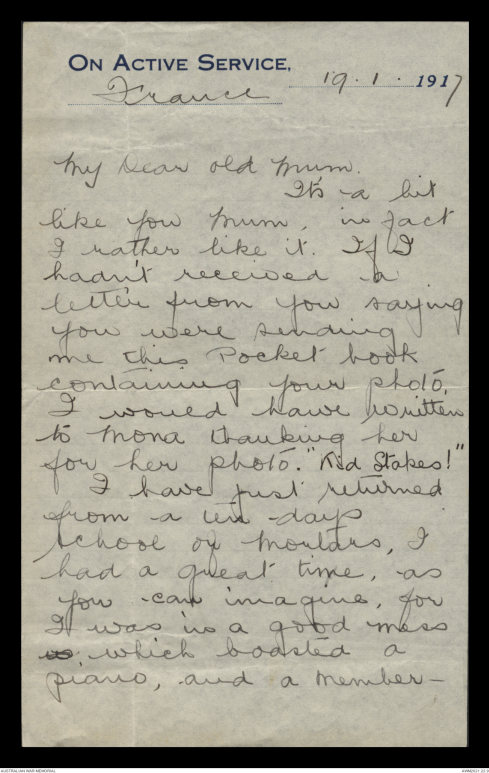 ON ACTIVE SERVICE,
19.1.1917
France
My Dear old Mum.
It's a bit
like you Mum, in fact
I rather like it. If I
hadn't received a
letter from you saying
you were sending
me this Pocket book
containing your photo,
I would have written
to Mona thanking her
for her photo. "Kid Stakes!"
I have just returned
from a ten days
school of Mortars, I
had a great time, as
you can imagine, for
I was in a good mess
which boasted a
piano, and a member-
AUSTRALIAN WAR MEMORIAL